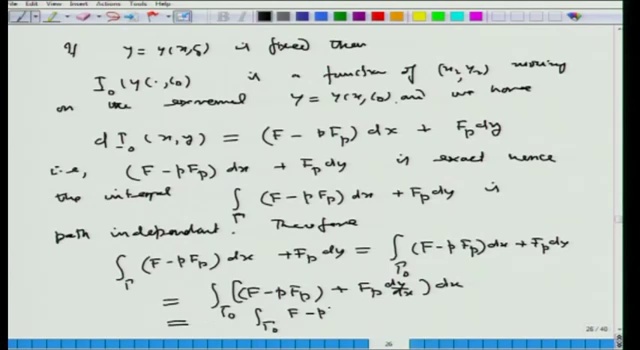 File Edit View Insert Actions Tools Help
If y = y(x,ξ) is fixed then
I₀(y(·,ζ₀) is a function of (x₂,y₂) moving
on the extremal y = y(x,ζ₀) and we have
d I₀(x,y) = (F - pFₚ) dx + Fₚdy
i.e., (F - pFₚ) dx + Fₚdy is exact hence
the integral ∫_Γ (F - pFₚ) dx + Fₚdy is
path independant. Therefore
∫_Γ (F - pFₚ) dx + Fₚdy = ∫_Γ₀ (F - pFₚ) dx + Fₚdy
= ∫_Γ₀ [(F - pFₚ) + Fₚ dy/dx) dx
= ∫_Γ₀ F - p
26
26 / 40